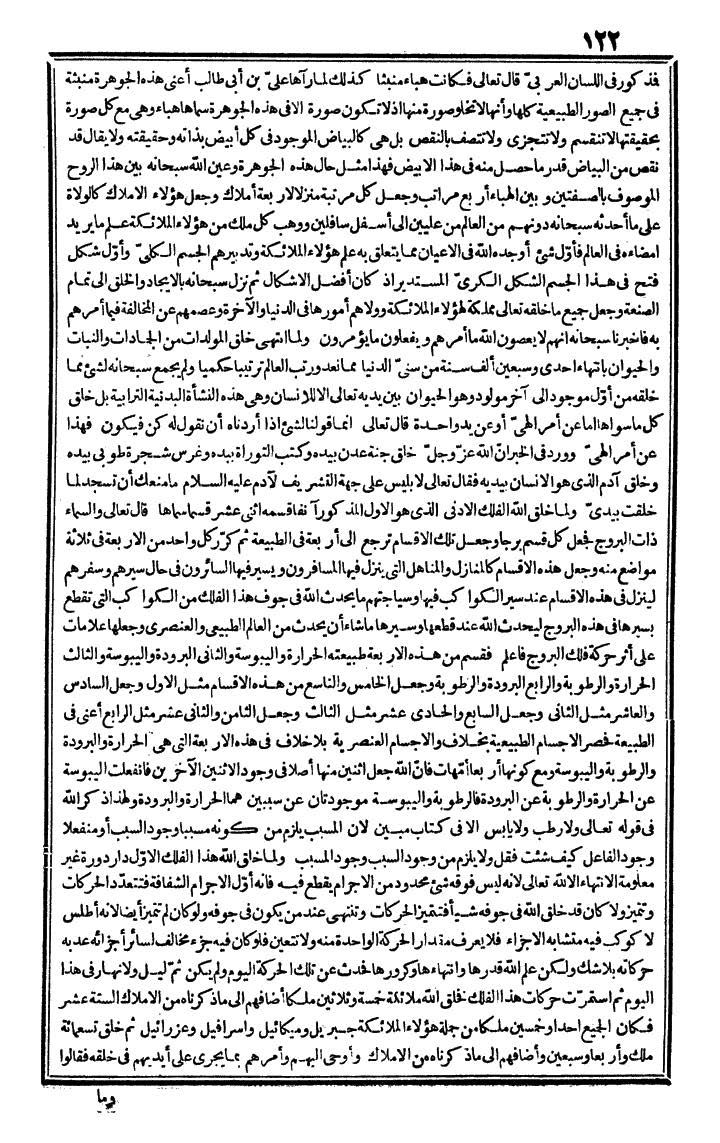 ١٢٢
فذكور فى اللسان العربىّ قال تعالى فكانت هباء منبثا كذلك لما رآها علىّ بن أبى طالب أعنى هذه الجوهرة منبثة
فى جميع الصور الطبيعية كلها وأنها لا تخلو صورة منها اذلا تكون صورة الا فى هذه الجوهرة سماها هباء وهى مع كل صورة
بحقيقتها لا تنقسم ولا تتجزى ولا تتصف بالنقص بل هى كالبياض الموجود فى كل أبيض بذاته وحقيقته ولا يقال قد
نقص من البياض قدر ما حصل منه فى هذا الابيض فهذا مثل حال هذه الجوهرة وعين الله سبحانه بين هذا الروح
الموصوف بالصفتين وبين الهباء أربع مراتب وجعل كل مرتبة منزلا لاربعة أملاك وجعل هؤلاء الاملاك كالولاة
على ما أحدثه سبحانه دونهم من العالم من عليين الى أسفل سافلين ووهب كل ملك من هؤلاء الملائكة علم ما يريد
امضاءه فى العالم فأوّل شئ أوجده الله فى الاعيان مما يتعلق به علم هؤلاء الملائكة وتدبيرهم الجسم الكلىّ وأوّل شكل
فتح فى هذا الجسم الشكل الكرىّ المستدير اذ كان أفضل الاشكال ثم نزل سبحانه بالايجاد والخلق الى تمام
الصنعة وجعل جميع ما خلقه تعالى مملكة لهؤلاء الملائكة وولاهم أمورها فى الدنيا والآخرة وعصمهم عن المخالفة فيما أمرهم
به فاخبرنا سبحانه انهم لا يعصون الله ما أمرهم ويفعلون ما يؤمرون ولما انتهى خلق المولدات من الجمادات والنبات
والحيوان بانتهاء احدى وسبعين ألف سنة من سنىّ الدنيا مما نعد ورتب العالم ترتيبا حكميا ولم يجمع سبحانه لشئ مما
خلقه من أوّل موجود الى آخر مولود وهو الحيوان بين يديه تعالى الا للانسان وهى هذه النشأة البدنية الترابية بل خلق
كل ما سواها اما عن أمر الهىّ أو عن يد واحدة قال تعالى انما قولنا لشئ اذا أردناه أن نقول له كن فيكون فهذا
عن أمر الهىّ وورد فى الخبر انّ الله عزّ وجلّ خلق جنة عدن بيده وكتب التوراة بيده وغرس شجرة طوبى بيده
وخلق آدم الذى هو الانسان بيديه فقال تعالى لابليس على جهة التشريف لآدم عليه السلام ما منعك أن تسجد لما
خلقت بيدىّ ولما خلق الله الفلك الادنى الذى هو الاول المذكور آنفا قسمه اثنى عشر قسما سماها قال تعالى والسماء
ذات البروج فجعل كل قسم برجا وجعل تلك الاقسام ترجع الى أربعة فى الطبيعة ثم كرّر كل واحد من الاربعة فى ثلاثة
مواضع منه وجعل هذه الاقسام كالمنازل والمناهل التى ينزل فيها المسافرون ويسير فيها السائرون فى حال سيرهم وسفرهم
لينزل فى هذه الاقسام عند سير الكواكب فيها وسباحتهم ما يحدث الله فى جوف هذا الفلك من الكواكب التى تقطع
بسيرها فى هذه البروج ليحدث الله عند قطعها وسيرها ما شاء أن يحدث من العالم الطبيعى والعنصرى وجعلها علامات
على أثر حركة فلك البروج فاعلم فقسم من هذه الاربعة طبيعته الحرارة واليبوسة والثانى البرودة واليبوسة والثالث
الحرارة والرطوبة والرابع البرودة والرطوبة وجعل الخامس والتاسع من هذه الاقسام مثل الاول وجعل السادس
والعاشر مثل الثانى وجعل السابع والحادى عشر مثل الثالث وجعل الثامن والثانى عشر مثل الرابع أعنى فى
الطبيعة فحصر الاجسام الطبيعية بخلاف والاجسام العنصرية بلا خلاف فى هذه الاربعة التى هى الحرارة والبرودة
والرطوبة واليبوسة ومع كونها أربعا أمّهات فانّ الله جعل اثنين منها أصلا فى وجود الاثنين الآخرين فانفعلت اليبوسة
عن الحرارة والرطوبة عن البرودة فالرطوبة واليبوسة موجودتان عن سببين هما الحرارة والبرودة ولهذا ذكر الله
فى قوله تعالى ولا رطب ولا يابس الا فى كتاب مبين لان المسبب يلزم من كونه مسببا وجود السبب أو منفعلا
وجود الفاعل كيف شئت فقل ولا يلزم من وجود السبب وجود المسبب ولما خلق الله هذا الفلك الاوّل دار دورة غير
معلومة الانتهاء الا لله تعالى لانه ليس فوقه شئ محدود من الاجرام يقطع فيه فانه أوّل الاجرام الشفافة فتتعدّد الحركات
وتتميز ولا كان قد خلق الله فى جوفه شيأ فتتميز الحركات وتنتهى عند من يكون فى جوفه ولو كان لم تتميز أيضا لانه أطلس
لا كوكب فيه متشابه الاجزاء فلا يعرف مقدار الحركة الواحدة منه ولا تتعين فلو كان فيه جزء مخالف لسائر أجزائه عد به
حركاته بلا شك ولكن علم الله قدرها وانتهاءها وكرورها فحدث عن تلك الحركة اليوم ولم يكن ثمّ ليل ولا نهار فى هذا
اليوم ثم استمرّت حركات هذا الفلك فخلق الله ملائكة خمسة وثلاثين ملكا أضافهم الى ما ذكرناه من الاملاك الستة عشر
فكان الجميع احدا وخمسين ملكا من جملة هؤلاء الملائكة جبريل وميكائيل واسرافيل وعزرائيل ثم خلق تسعمائة
ملك وأربعا وسبعين وأضافهم الى ما ذكرناه من الاملاك وأوحى اليهم وأمرهم بما يجرى على أيديهم فى خلقه فقالوا
وما